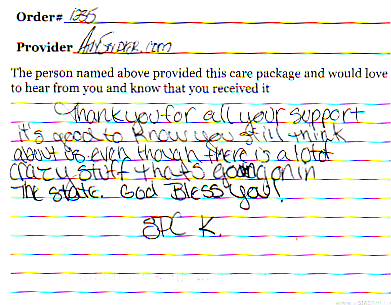 Order# 1335
Provider AnySoldier.com
The person named above provided this care package and would love
to hear from you and know that you received it
Thank you for all your support
it's good to know you still think
about us even though there is a lot of
crazy stuff thats going on in
The state. God Bless you!
SPC K.